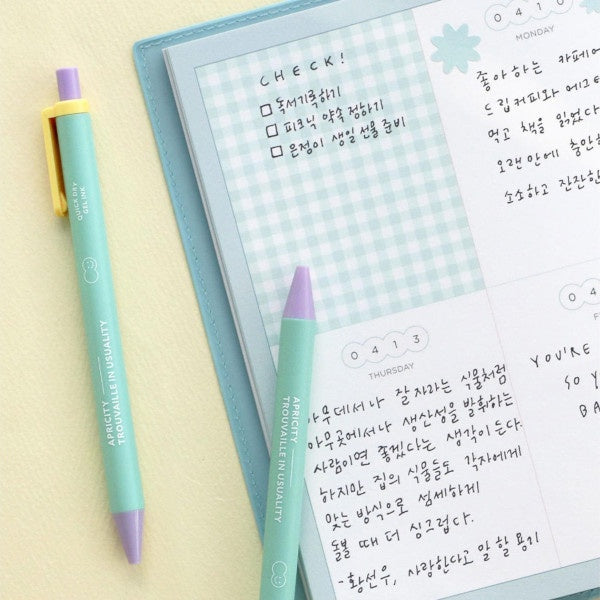 CHECK!
독서기록하기
피크닉 약속 정하기
은정이 생일선물 준비
0410
MONDAY
좋아하는 카페에
드립커피와 에그
먹고 책을 읽었다
오랜만에 충만
소소하고 잔잔한
0413
THURSDAY
아무데서나 잘 자라는 식물처럼
아무곳에서나 생산성을 발휘하는
사람이면 좋겠다는 생각이 든다.
하지만 집의 식물들도 각자에게
맞는 방식으로 섬세하게
돌볼 때 더 싱그럽다.
-황선우, 사랑한다고 말할 용기
0 4
F
YOU'RE
SO Y
BA
QUICK DRY
GEL INK
APRICITY
TROUVAILLE IN USUALITY
APRICITY
TROUVAILLE IN USUALITY